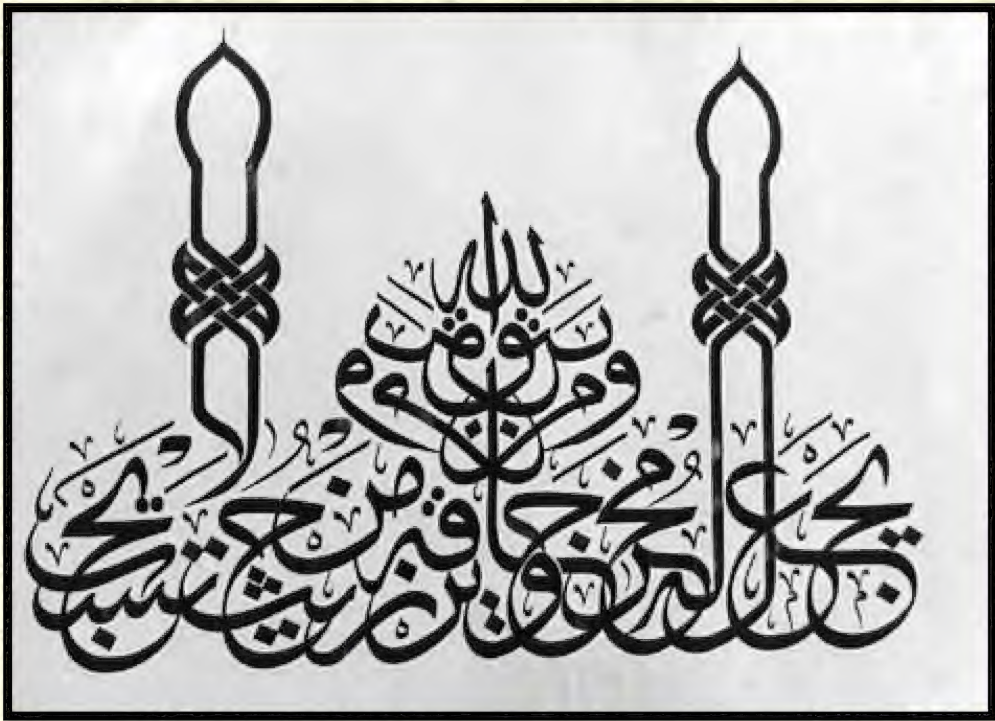 ومن يتق الله
يجعل له مخرجا ويرزقه من حيث لا يحتسب